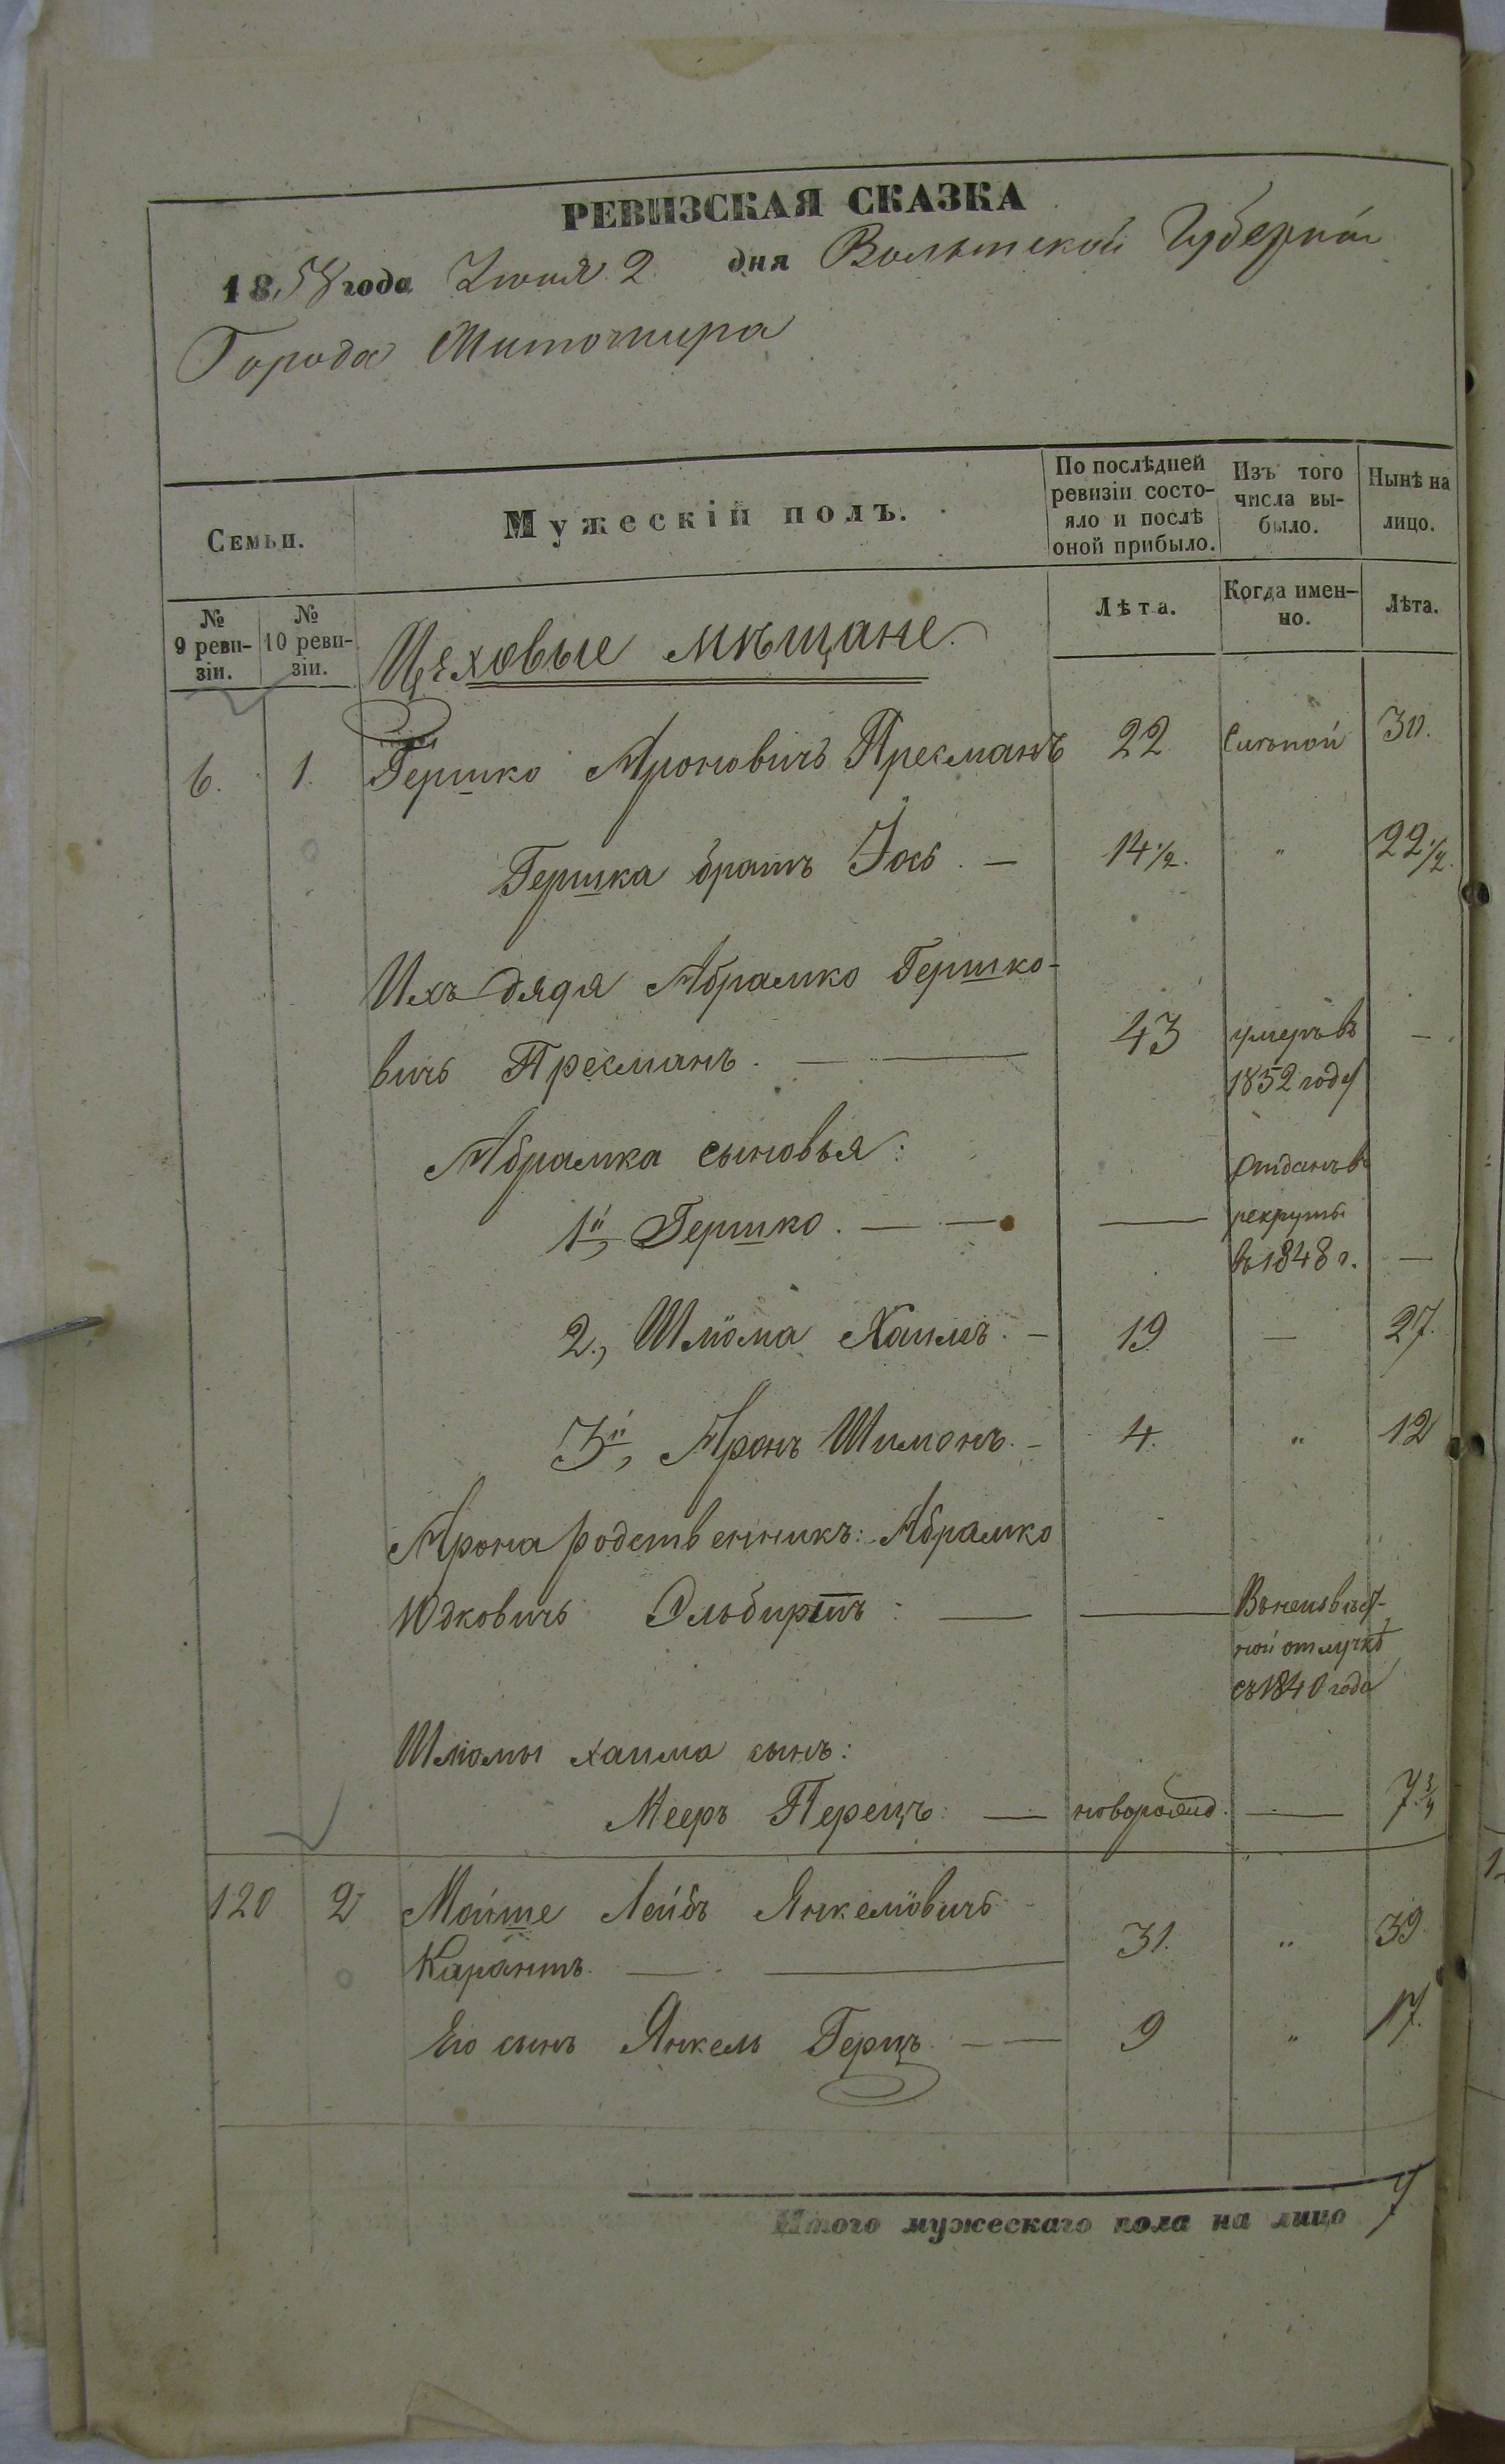 РЕВИЗСКАЯ СКАЗКА
1858 года Июня 2 дня Волынской Губерніи
Города Житомира
Семьи.
Мужескій полъ.
По послѣдней ревизіи состо-
яло и послѣ
оной прибыло.
Изъ того
числа вы-
было.
Нынѣ на
лицо.
№ 9 реви-
зіи.
№ 10 реви-
зіи.
Лѣта.
Когда имен-
но.
Лѣта.
Цеховые мѣщане.
6. 1. Гершко Ароновичъ Пресманъ 22 30.
Гершка братъ Іось. — 14½. " 22½.
Ихъ дядя Абрамко Гершко-
вичъ Пресманъ. — 43 умеръ въ
1852 году —
Абрамка сыновья:
1й, Гершко. — — отданъ въ
рекруты
въ 1848 г. —
2., Шліома Хаимъ. — 19 — 27.
3й, Аронъ Шимонъ. — 4. " 12
Арона родственникъ: Абрамко
Юдковичъ — — Въ неизвѣст-
ной отлучкѣ
съ 1840 года
Шліомы хаима сынъ:
Мееръ Перецъ: — новорожд. — 7¾
120 2 Мойше Лейбъ Янкеліовичъ
Карантъ. — 31. " 39
Его сынъ Янкель Герцъ. — 9 " 17.
Итого мужескаго пола на лицо 7